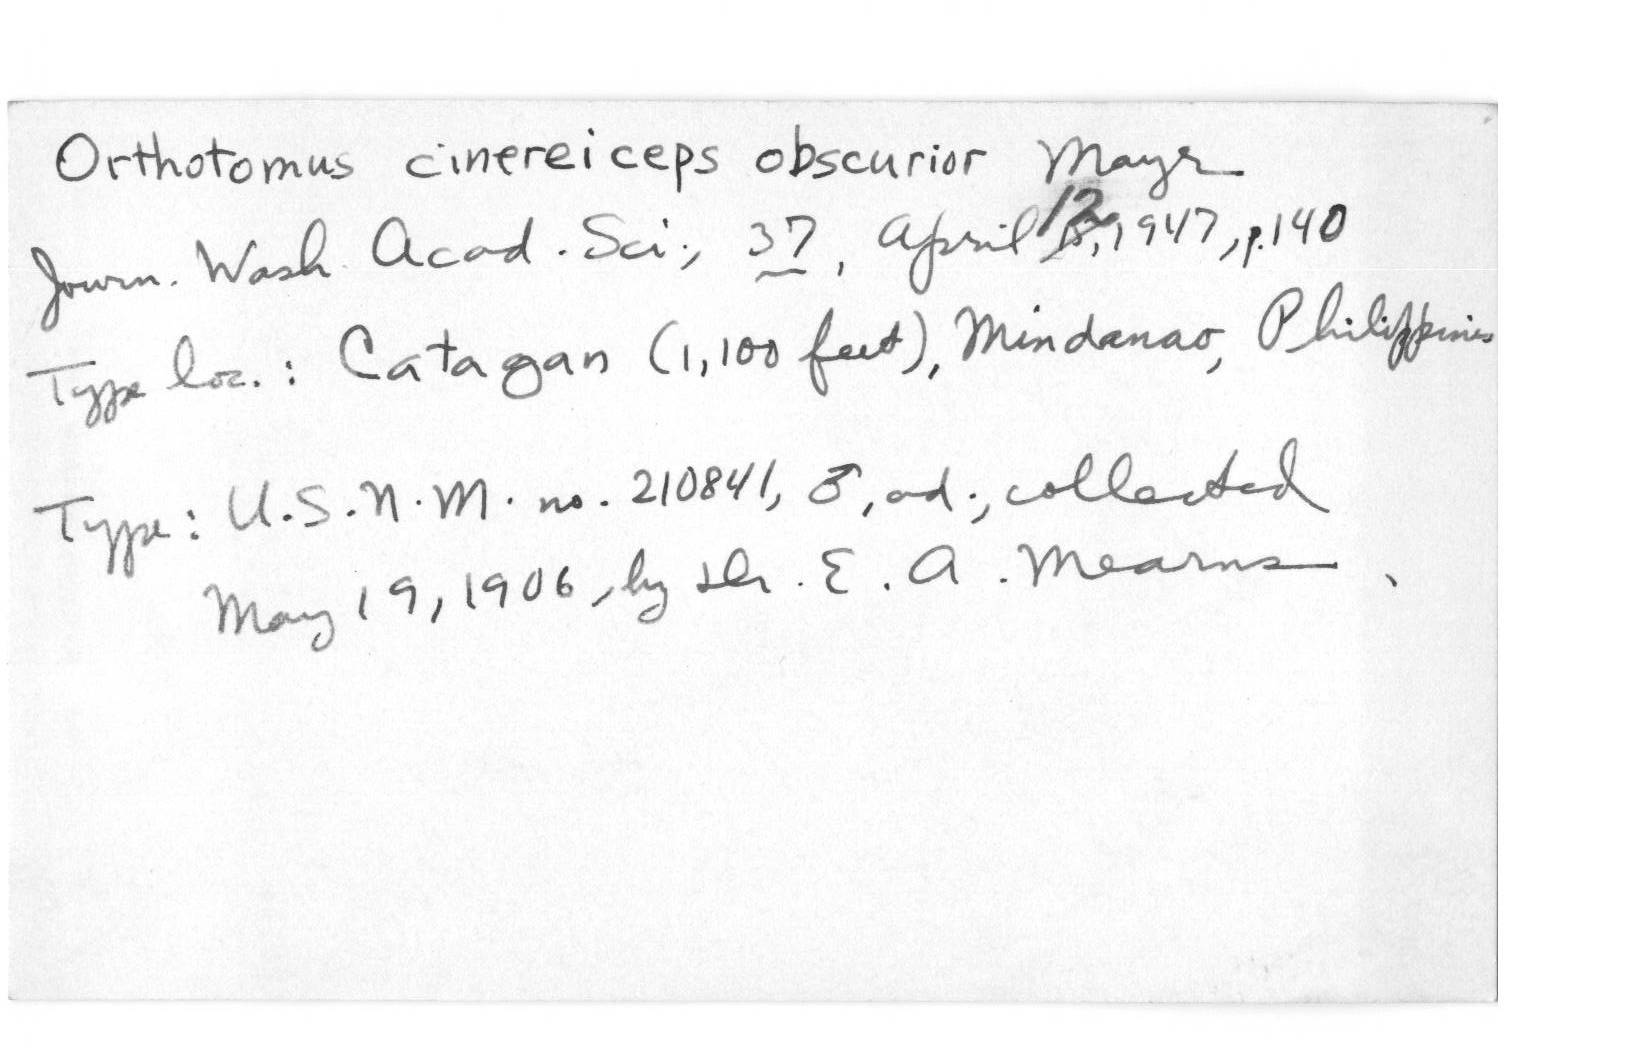 Orthotomus cinereiceps obscurior Mayr
Journ. Wash. Acad. Sci., 37, April 12, 1947, p.140
Type loc.: Catagan (1,100 feet), Mindanao, Philippines
Type: U.S.N.M. no. 210841, ♂, ad., collected
May 19, 1906, by Dr. E. A. Mearns.